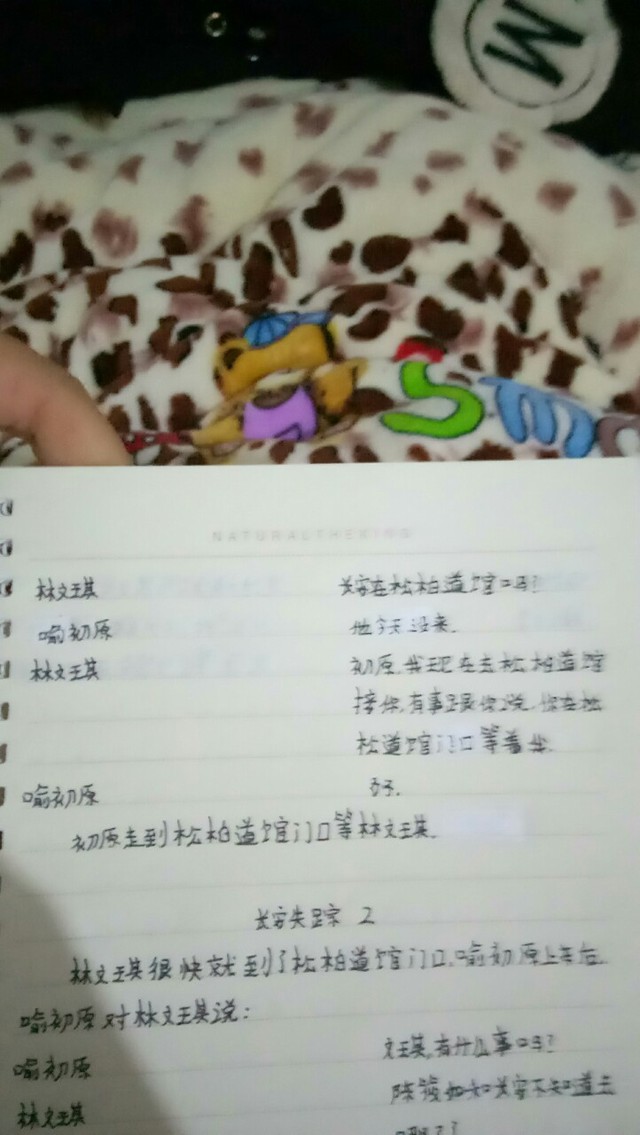 M
SM
NATURALTHEKING
林文琪 长安在松柏道馆吗?
喻初原 他今天没来.
林文琪 初原.我现在去松柏道馆
接你,有事跟你说.你在松
松道馆门口等着我.
喻初原 好.
初原走到松柏道馆门口等林文琪.
长安失踪 2
林文琪很快就到了松柏道馆门口.喻初原上车后.
喻初原对林文琪说:
喻初原 文琪,有什么事吗?
林文琪 和长安不知道去
哪了?